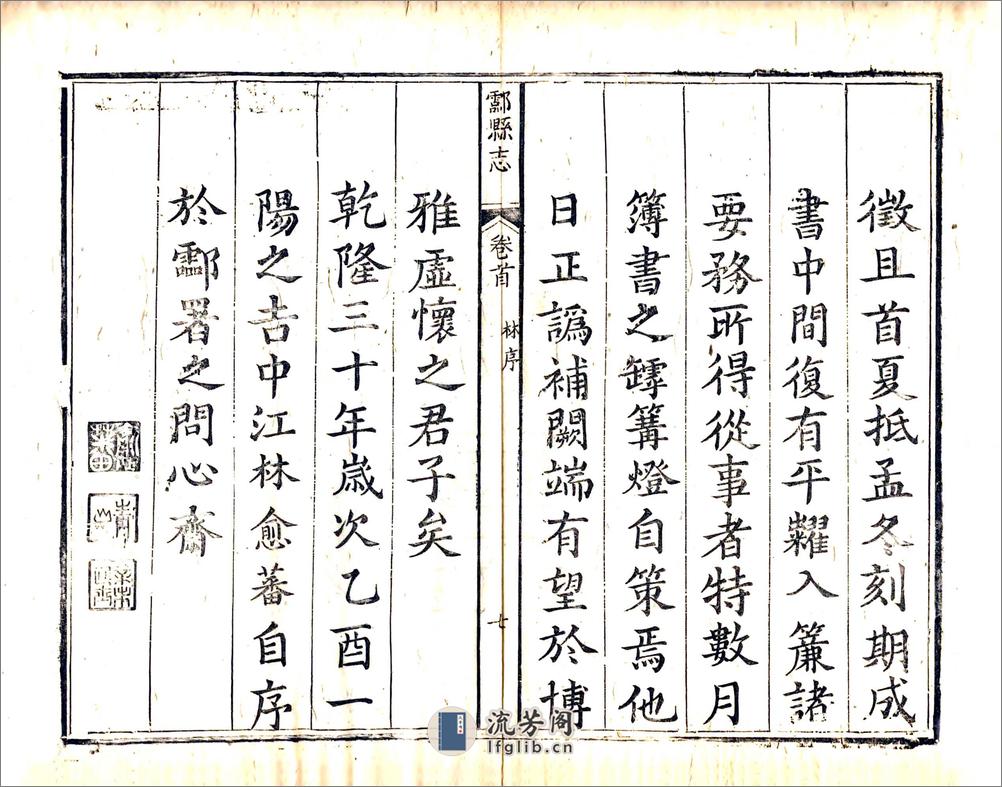 徵且首夏抵孟冬刻期成
書中間復有平糶入簾諸
要務所得從事者特數月
簿書之罅篝燈自策焉他
日正譌補闕端有望於博
酃縣志
卷首
林序
七
雅虛懷之君子矣
乾隆三十年歲次乙酉一
陽之吉中江林愈蕃自序
於酃署之問心齋
流芳阁
lfglib.cn